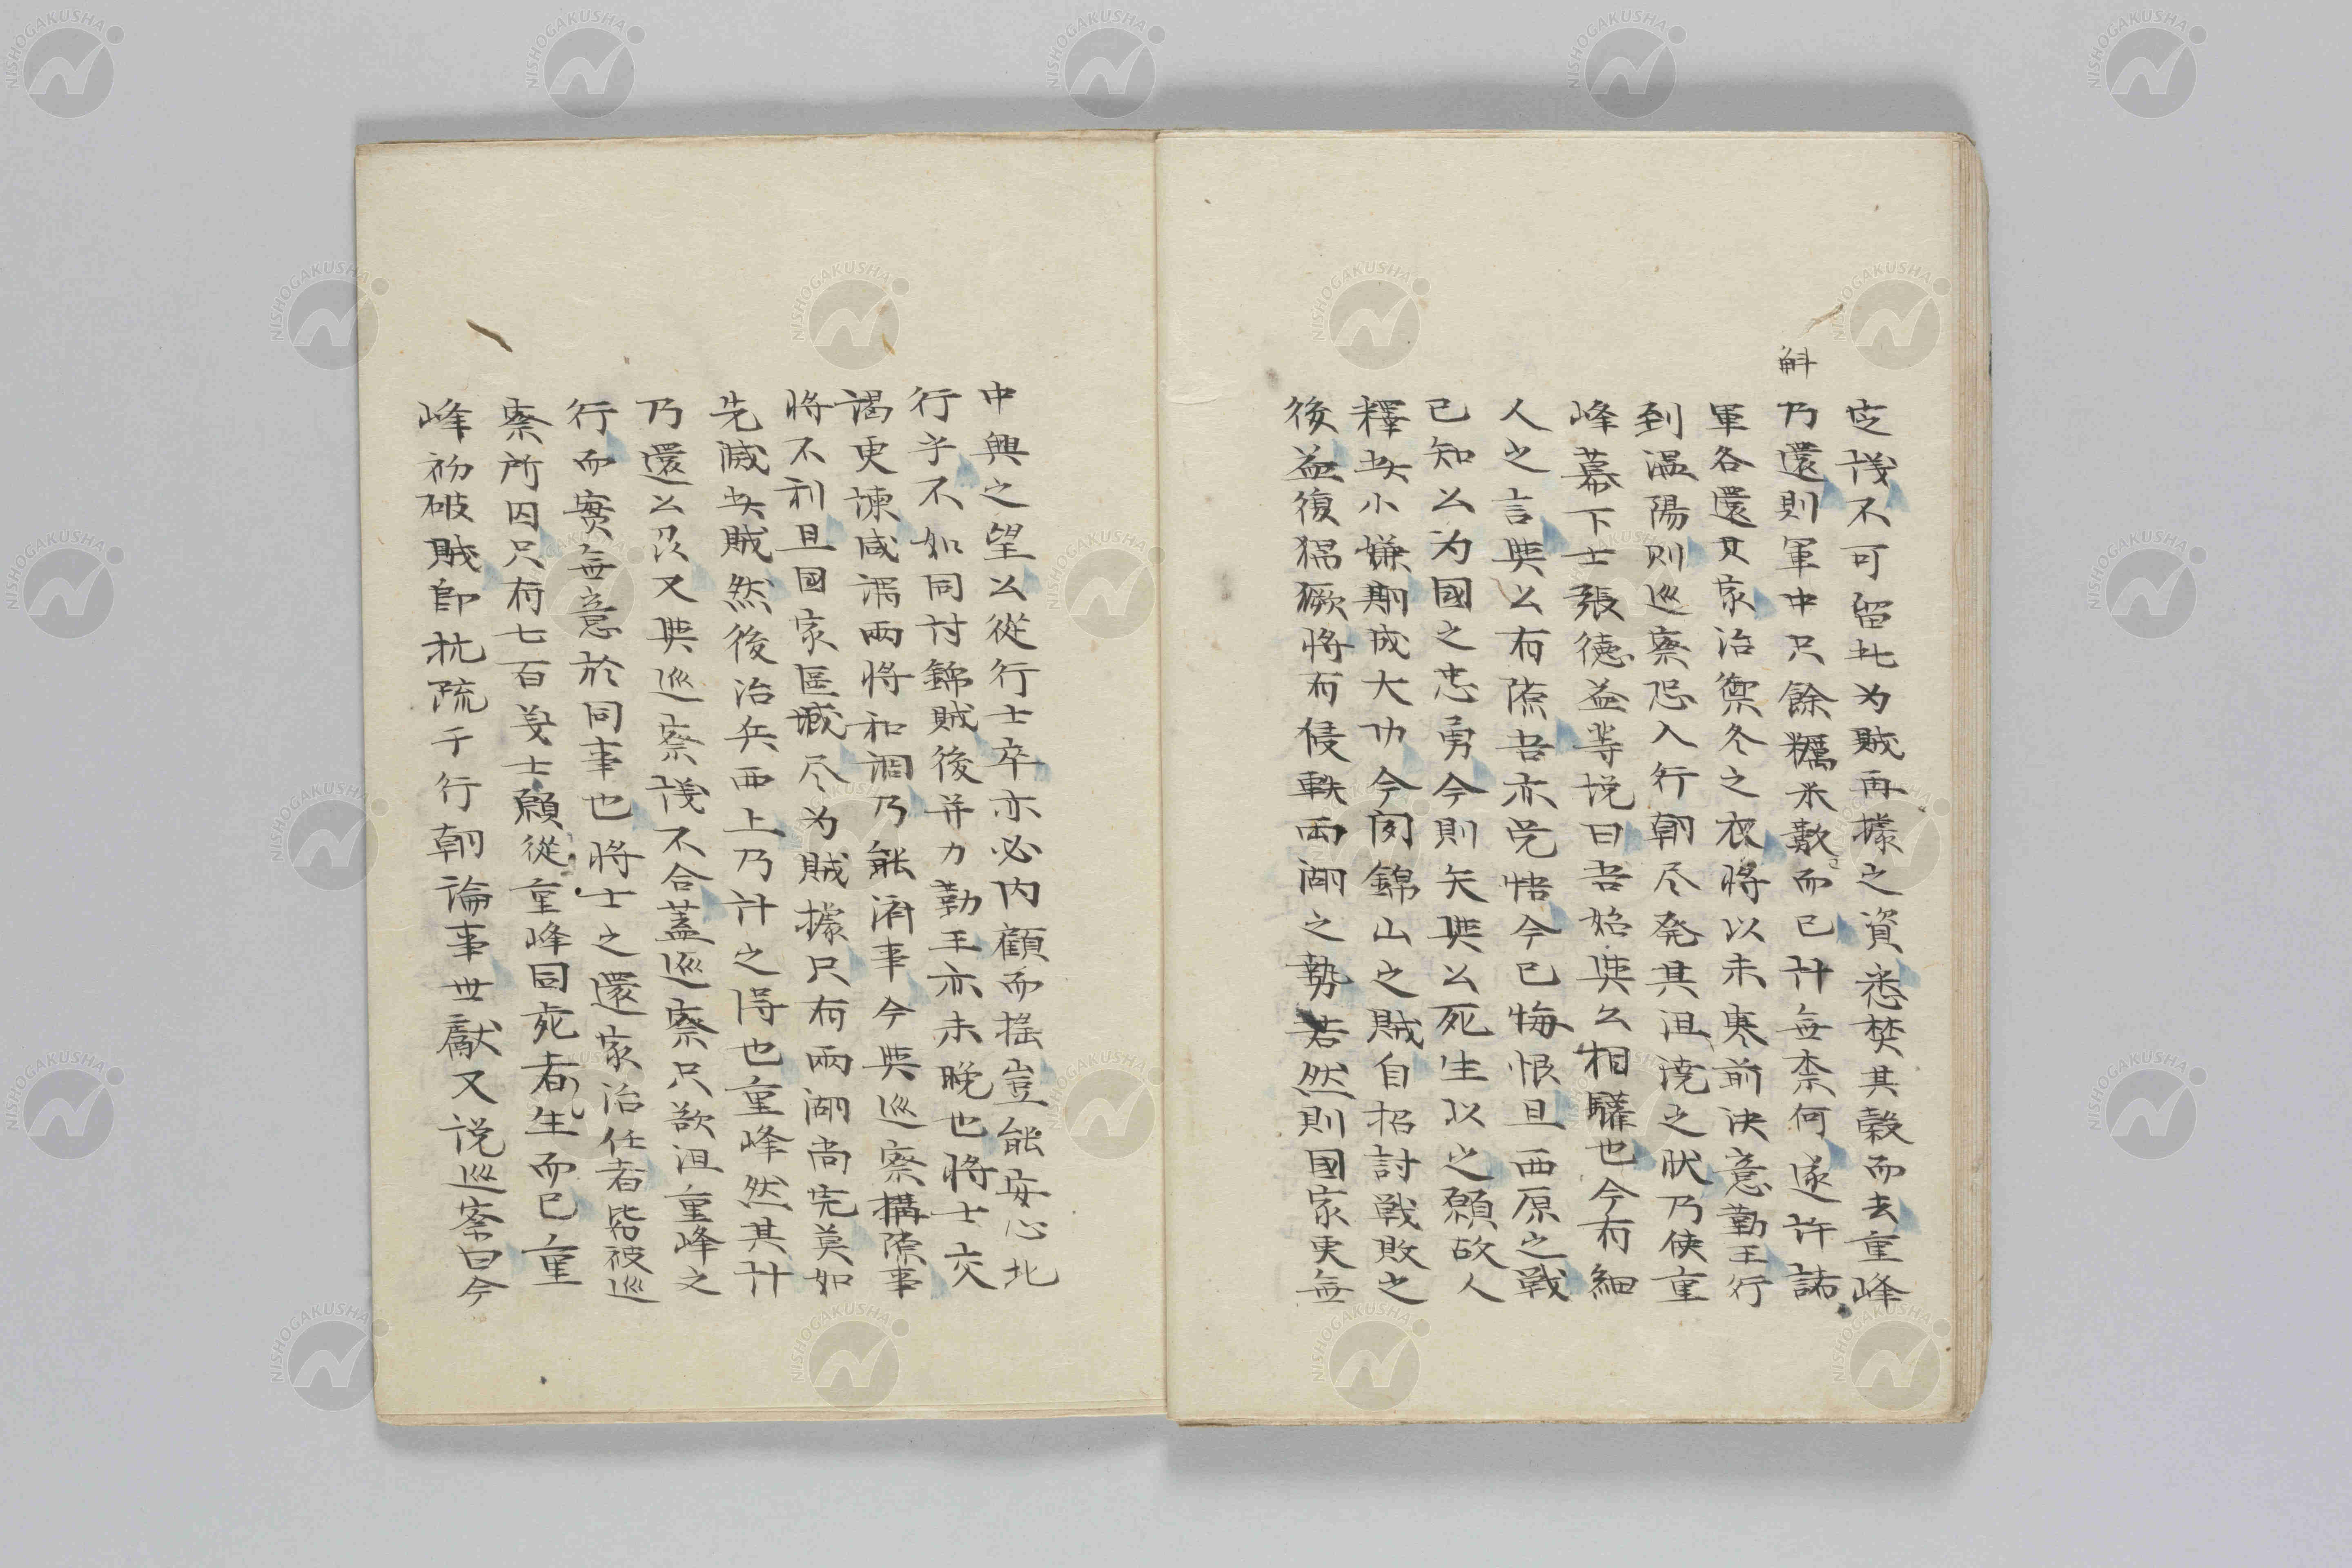 斛
定議不可留此为賊再據之資悉焚其穀而去重峰
乃還則軍中只餘糲米數而已計無柰何遂許諸
軍各還其家治禦冬之衣将以未寒前决意勤王行
到温陽則巡察恐入行朝尽発其沮撓之状乃使重
峰幕下士張德益等悦曰吾始與公相驩也今有細
人之言與公有隙吾亦覚悟今已悔恨且西原之戦
已知公为國之忠勇今則矢與公死生以之願故人
釋此小嫌期成大功今闻錦山之賊自招討戦敗之
後益復猖獗将有侵軼两湖之勢若然則國家更無
中興之望公從行士卒亦必内顧而揺豈能安心北
行乎不如同討錦賊後并力勤王亦未晩也将士交
謁更諫咸謂两将和
将不利且國家區域尽为賊據只有两湖尚完莫如
先滅此賊然後治兵西上乃計之得也重峰然其計
乃還公及又與巡察議不合蓋巡察只欲沮重峰之
行而實無意於同事也将士之還家治任者皆被巡
察所囚只有七百義士願從重峰同死者生而已重
峰初破賊即抗疏于行朝論事世獻又説巡察曰今